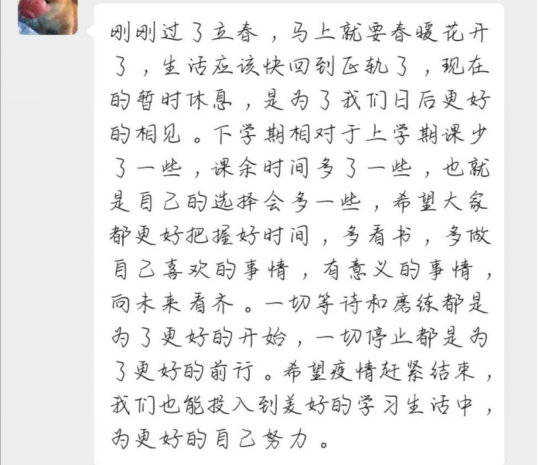 刚刚过了立春，马上就要春暖花开
了，生活应该快回到正轨了，现在
的暂时休息，是为了我们日后更好
的相见。下学期相对于上学期课少
了一些，课余时间多了一些，也就
是自己的选择会多一些，希望大家
都更好把握好时间，多看书，多做
自己喜欢的事情，有意义的事情，
向未来看齐。一切等待和磨练都是
为了更好的开始，一切停止都是为
了更好的前行。希望疫情赶紧结束，
我们也能投入到美好的学习生活中，
为更好的自己努力。